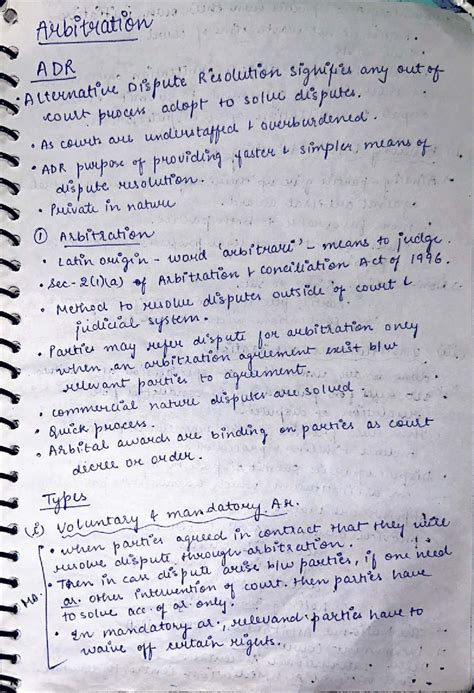 Arbitration
ADR
• Alternative Dispute Resolution signifies any out of
court process, adopt to solve disputes.
• As courts are understaffed & overburdened.
• ADR purpose of providing faster & simpler, means of
dispute resolution.
• Private in nature
① Arbitration
• Latin origin - word 'arbitrari' - means to judge.
• Sec-2(1)(a) of Arbitration & conciliation Act of 1996.
• Method to resolve disputes outside of court &
judicial system.
• Parties may refer dispute for arbitration only
when an arbitration agreement exist b/w
relevant parties to agreement.
• commercial nature disputes are solved
• Quick process.
• Arbital awards are binding on parties as court
dicree or order.
Types
(i) Voluntary & mandatory Ar.
• when parties agreed in contract that they will
resolve dispute through arbitration.
• Then in case dispute arise b/w parties, if one need
ar. other intervention of court. then parties have
to solve acc. of ar. only.
• In mandatory ar., relevand parties have to
waive off certain rights.